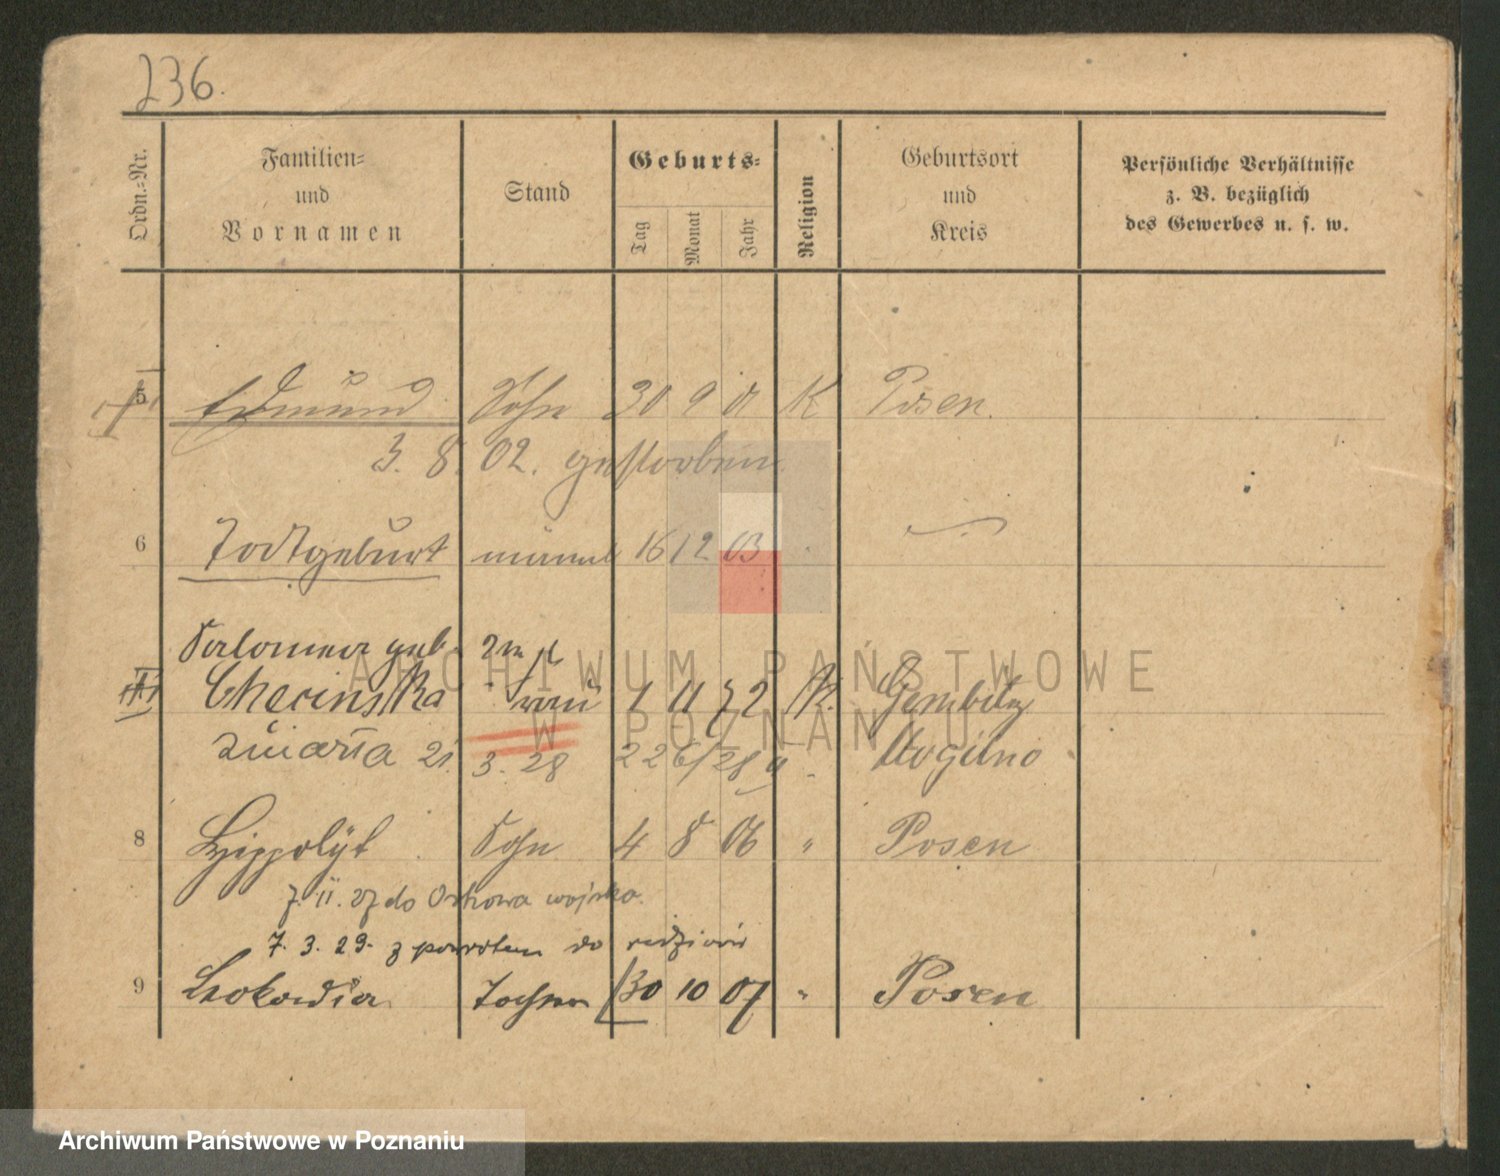 236.
Ordn.-Nr.
Familien-
und
Vornamen
Stand
Geburts-
Tag
Monat
Jahr
Religion
Geburtsort
und
Kreis
Persönliche Verhältnisse
z. B. bezüglich
des Gewerbes u. s. w.
5 Edmund Sohn 30 9 01 K Posen.
3. 8. 02. gestorben.
6 Todtgeburt männl 16 12 03
Salomea geb. 2te
Checinska Frau 1 11 72 K. Gembitz
zmarła 21. 3. 28 22 6/28 Mogilno
8 Hippolyt Sohn 4 8 06 " Posen
7. II. 27 do wojska.
7. 3. 29. z powrotem do rodziców
9 Leokadia Tochter 30 10 07 " Posen
ARCHIWUM PAŃSTWOWE
W POZNANIU
Archiwum Państwowe w Poznaniu